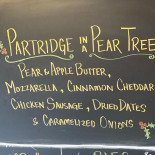 PARTRIDGE IN PEAR TREE
PEAR & APPLE BUTTER,
MOZZARELLA, CINNAMON CHEDDAR
CHICKEN SAUSAGE, DRIED DATES
& CARAMELIZED ONIONS